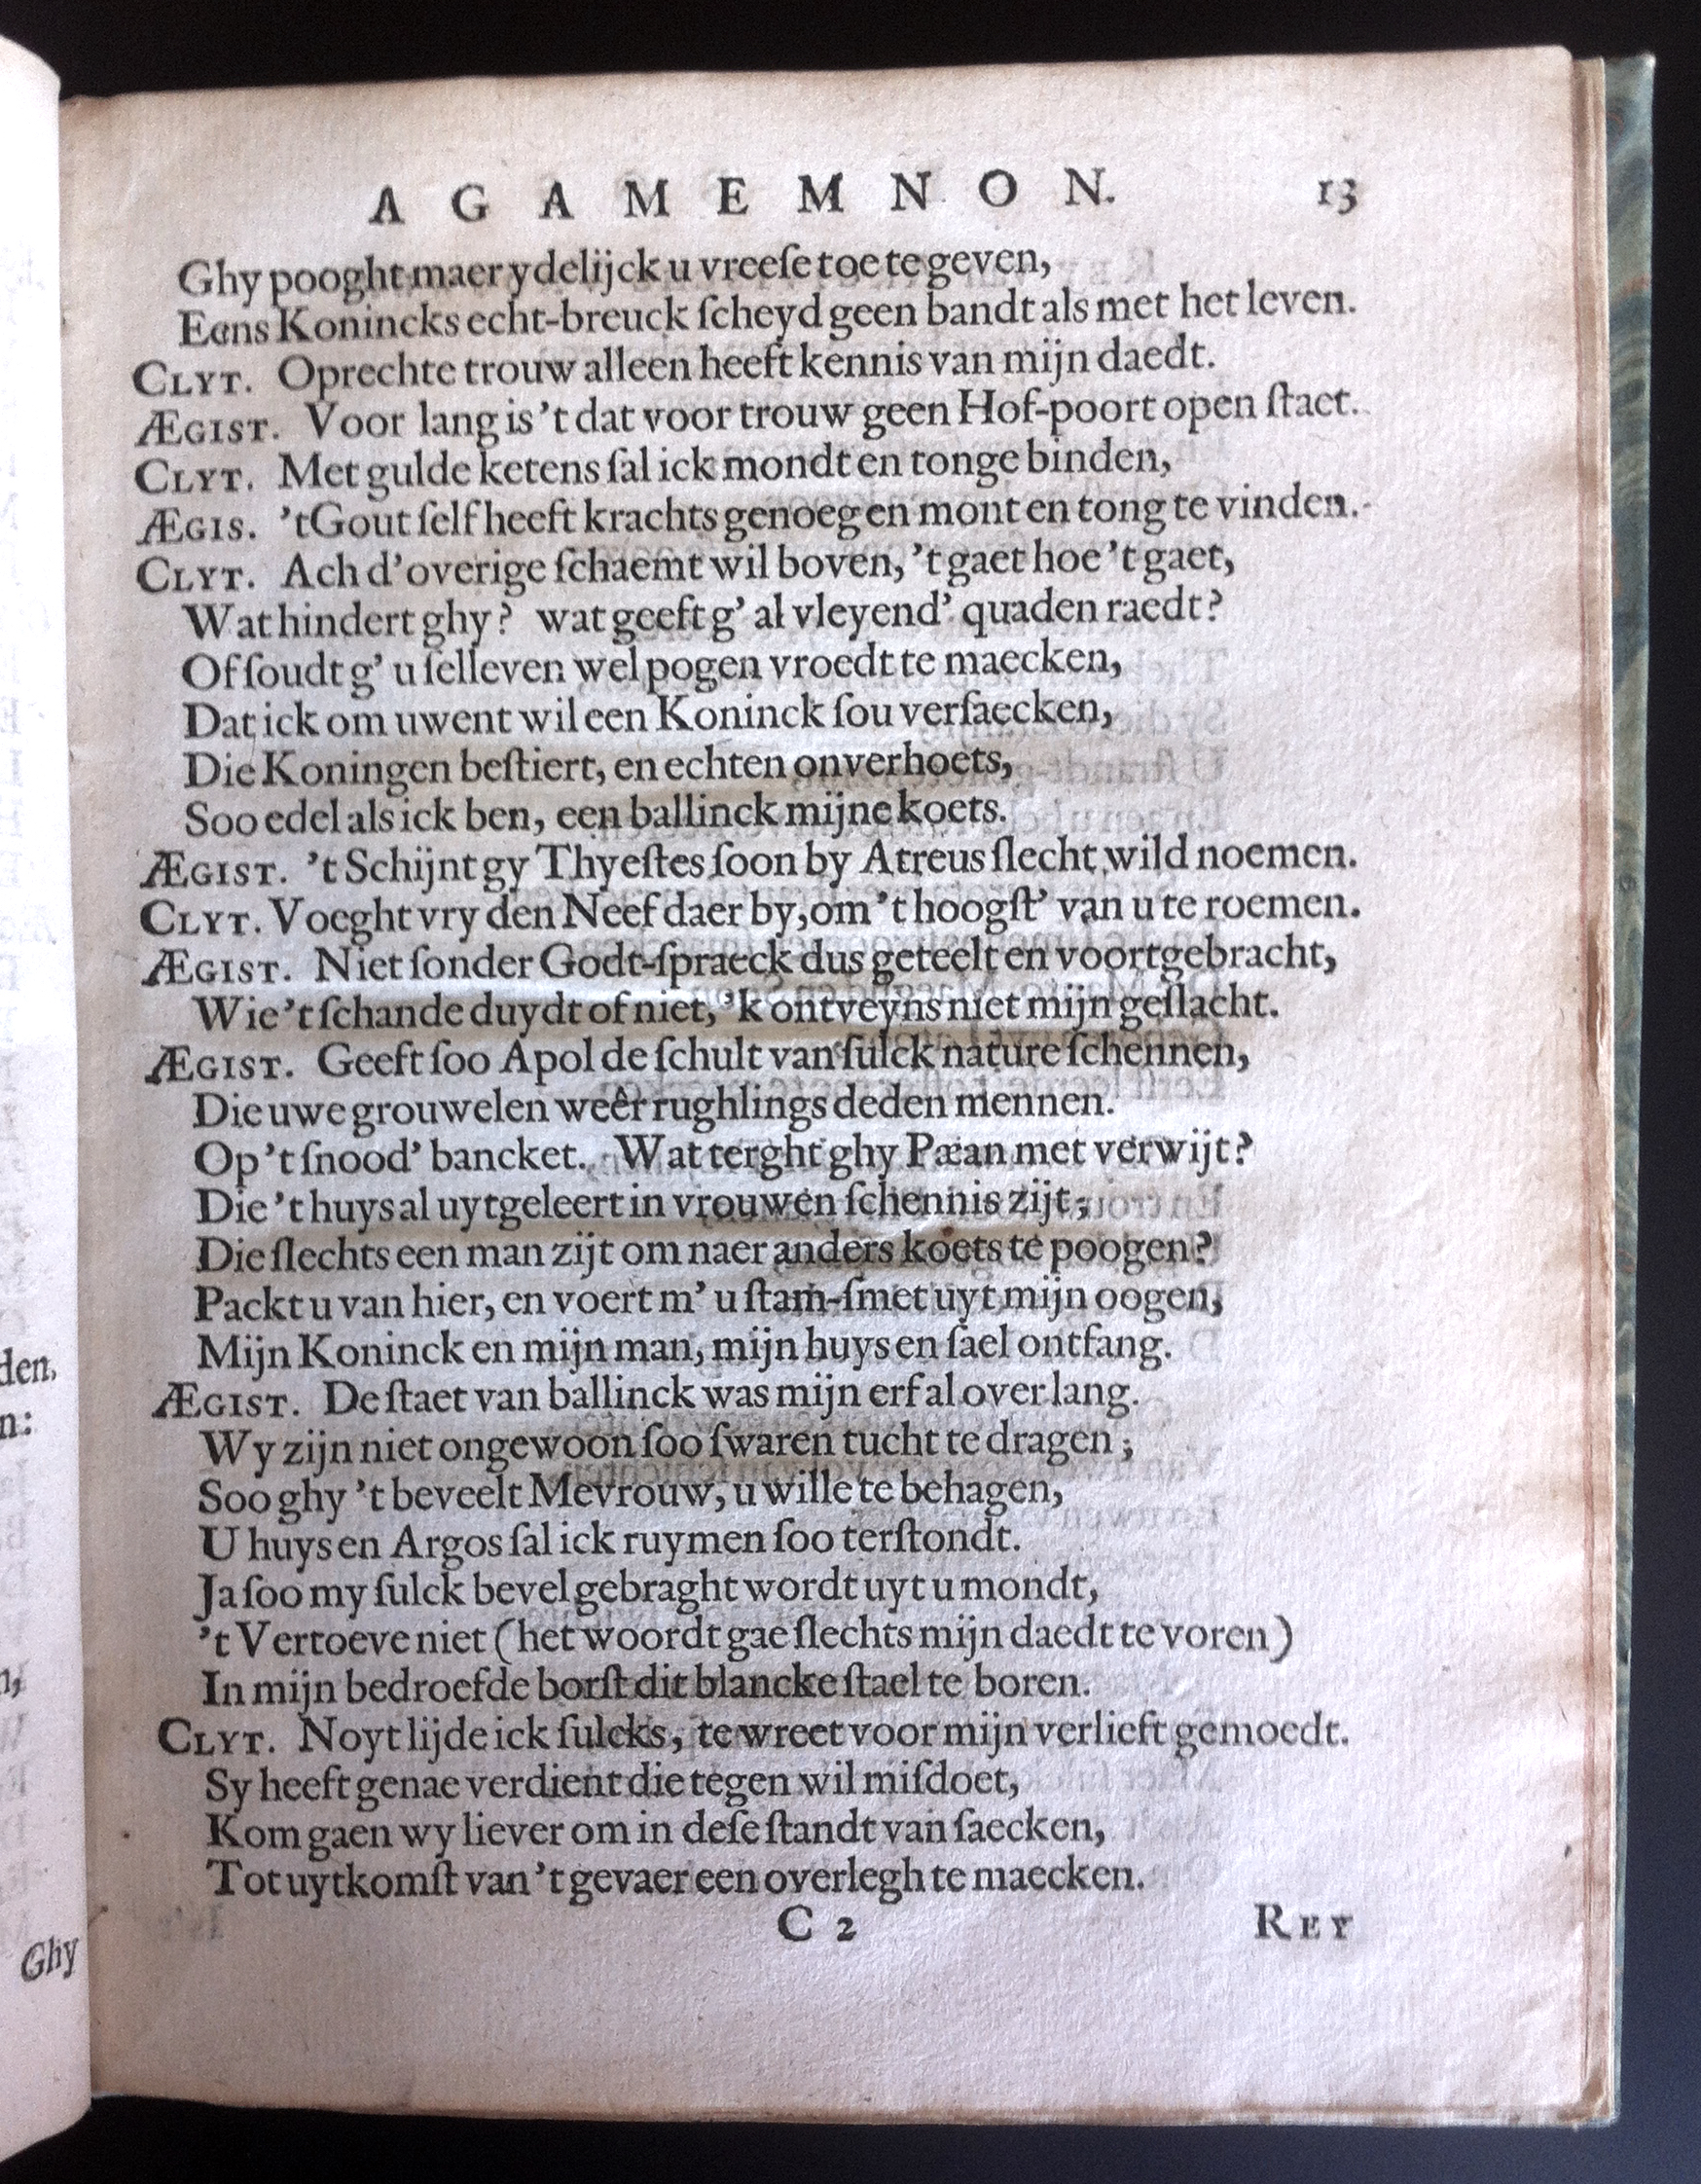 AGAMEMNON. 13
Ghy pooght maer ydelijck u vreeſe toe te geven,
Eens Konincks echt-breuck ſcheyd geen bandt als met het leven.
CLYT. Oprechte trouw alleen heeft kennis van mijn daedt.
ÆGIST. Voor lang is 't dat voor trouw geen Hof-poort open ſtaet.
CLYT. Met gulde ketens ſal ick mondt en tonge binden,
ÆGIS. 't Gout ſelf heeft krachts genoeg en mont en tong te vinden.
CLYT. Ach d'overige ſchaemt wil boven, 't gaet hoe 't gaet,
Wat hindert ghy? wat geeft g' al vleyend' quaden raedt?
Of ſoudt g' u ſelleven wel pogen vroedt te maecken,
Dat ick om uwent wil een Koninck ſou verſaecken,
Die Koningen beſtiert, en echten onverhoets,
Soo edel als ick ben, een ballinck mijne koets.
ÆGIST. 't Schijnt gy Thyeſtes ſoon by Atreus ſlecht wild noemen.
CLYT. Voeght vry den Neef daer by, om 't hoogſt' van u te roemen.
ÆGIST. Niet ſonder Godt-ſpraeck dus geteelt en voortgebracht,
Wie 't ſchande duydt of niet, 'k ontveyns niet mijn geſlacht.
ÆGIST. Geeft ſoo Apol de ſchult van ſulck nature ſchennen,
Die uwe grouwelen weêr rughlings deden mennen.
Op 't ſnood' bancket. Wat terght ghy Pæan met verwijt?
Die 't huys al uytgeleert in vrouwen ſchennis zijt;
Die ſlechts een man zijt om naer anders koets te poogen?
Packt u van hier, en voert m' u ſtam-ſmet uyt mijn oogen,
Mijn Koninck en mijn man, mijn huys en ſael ontfang.
ÆGIST. De ſtaet van ballinck was mijn erf al over lang.
Wy zijn niet ongewoon ſoo ſwaren tucht te dragen;
Soo ghy 't beveelt Mevrouw, u wille te behagen,
U huys en Argos ſal ick ruymen ſoo terſtondt.
Ja ſoo my ſulck bevel gebraght wordt uyt u mondt,
't Vertoeve niet (het woordt gae ſlechts mijn daedt te voren)
In mijn bedroefde borſt dit blancke ſtael te boren.
CLYT. Noyt lijde ick ſulcks, te wreet voor mijn verlieft gemoedt.
Sy heeft genae verdient die tegen wil miſdoet,
Kom gaen wy liever om in deſe ſtandt van ſaecken,
Tot uytkomſt van 't gevaer een overlegh te maecken.
C 2 REY
den,
n:
n,
Ghy